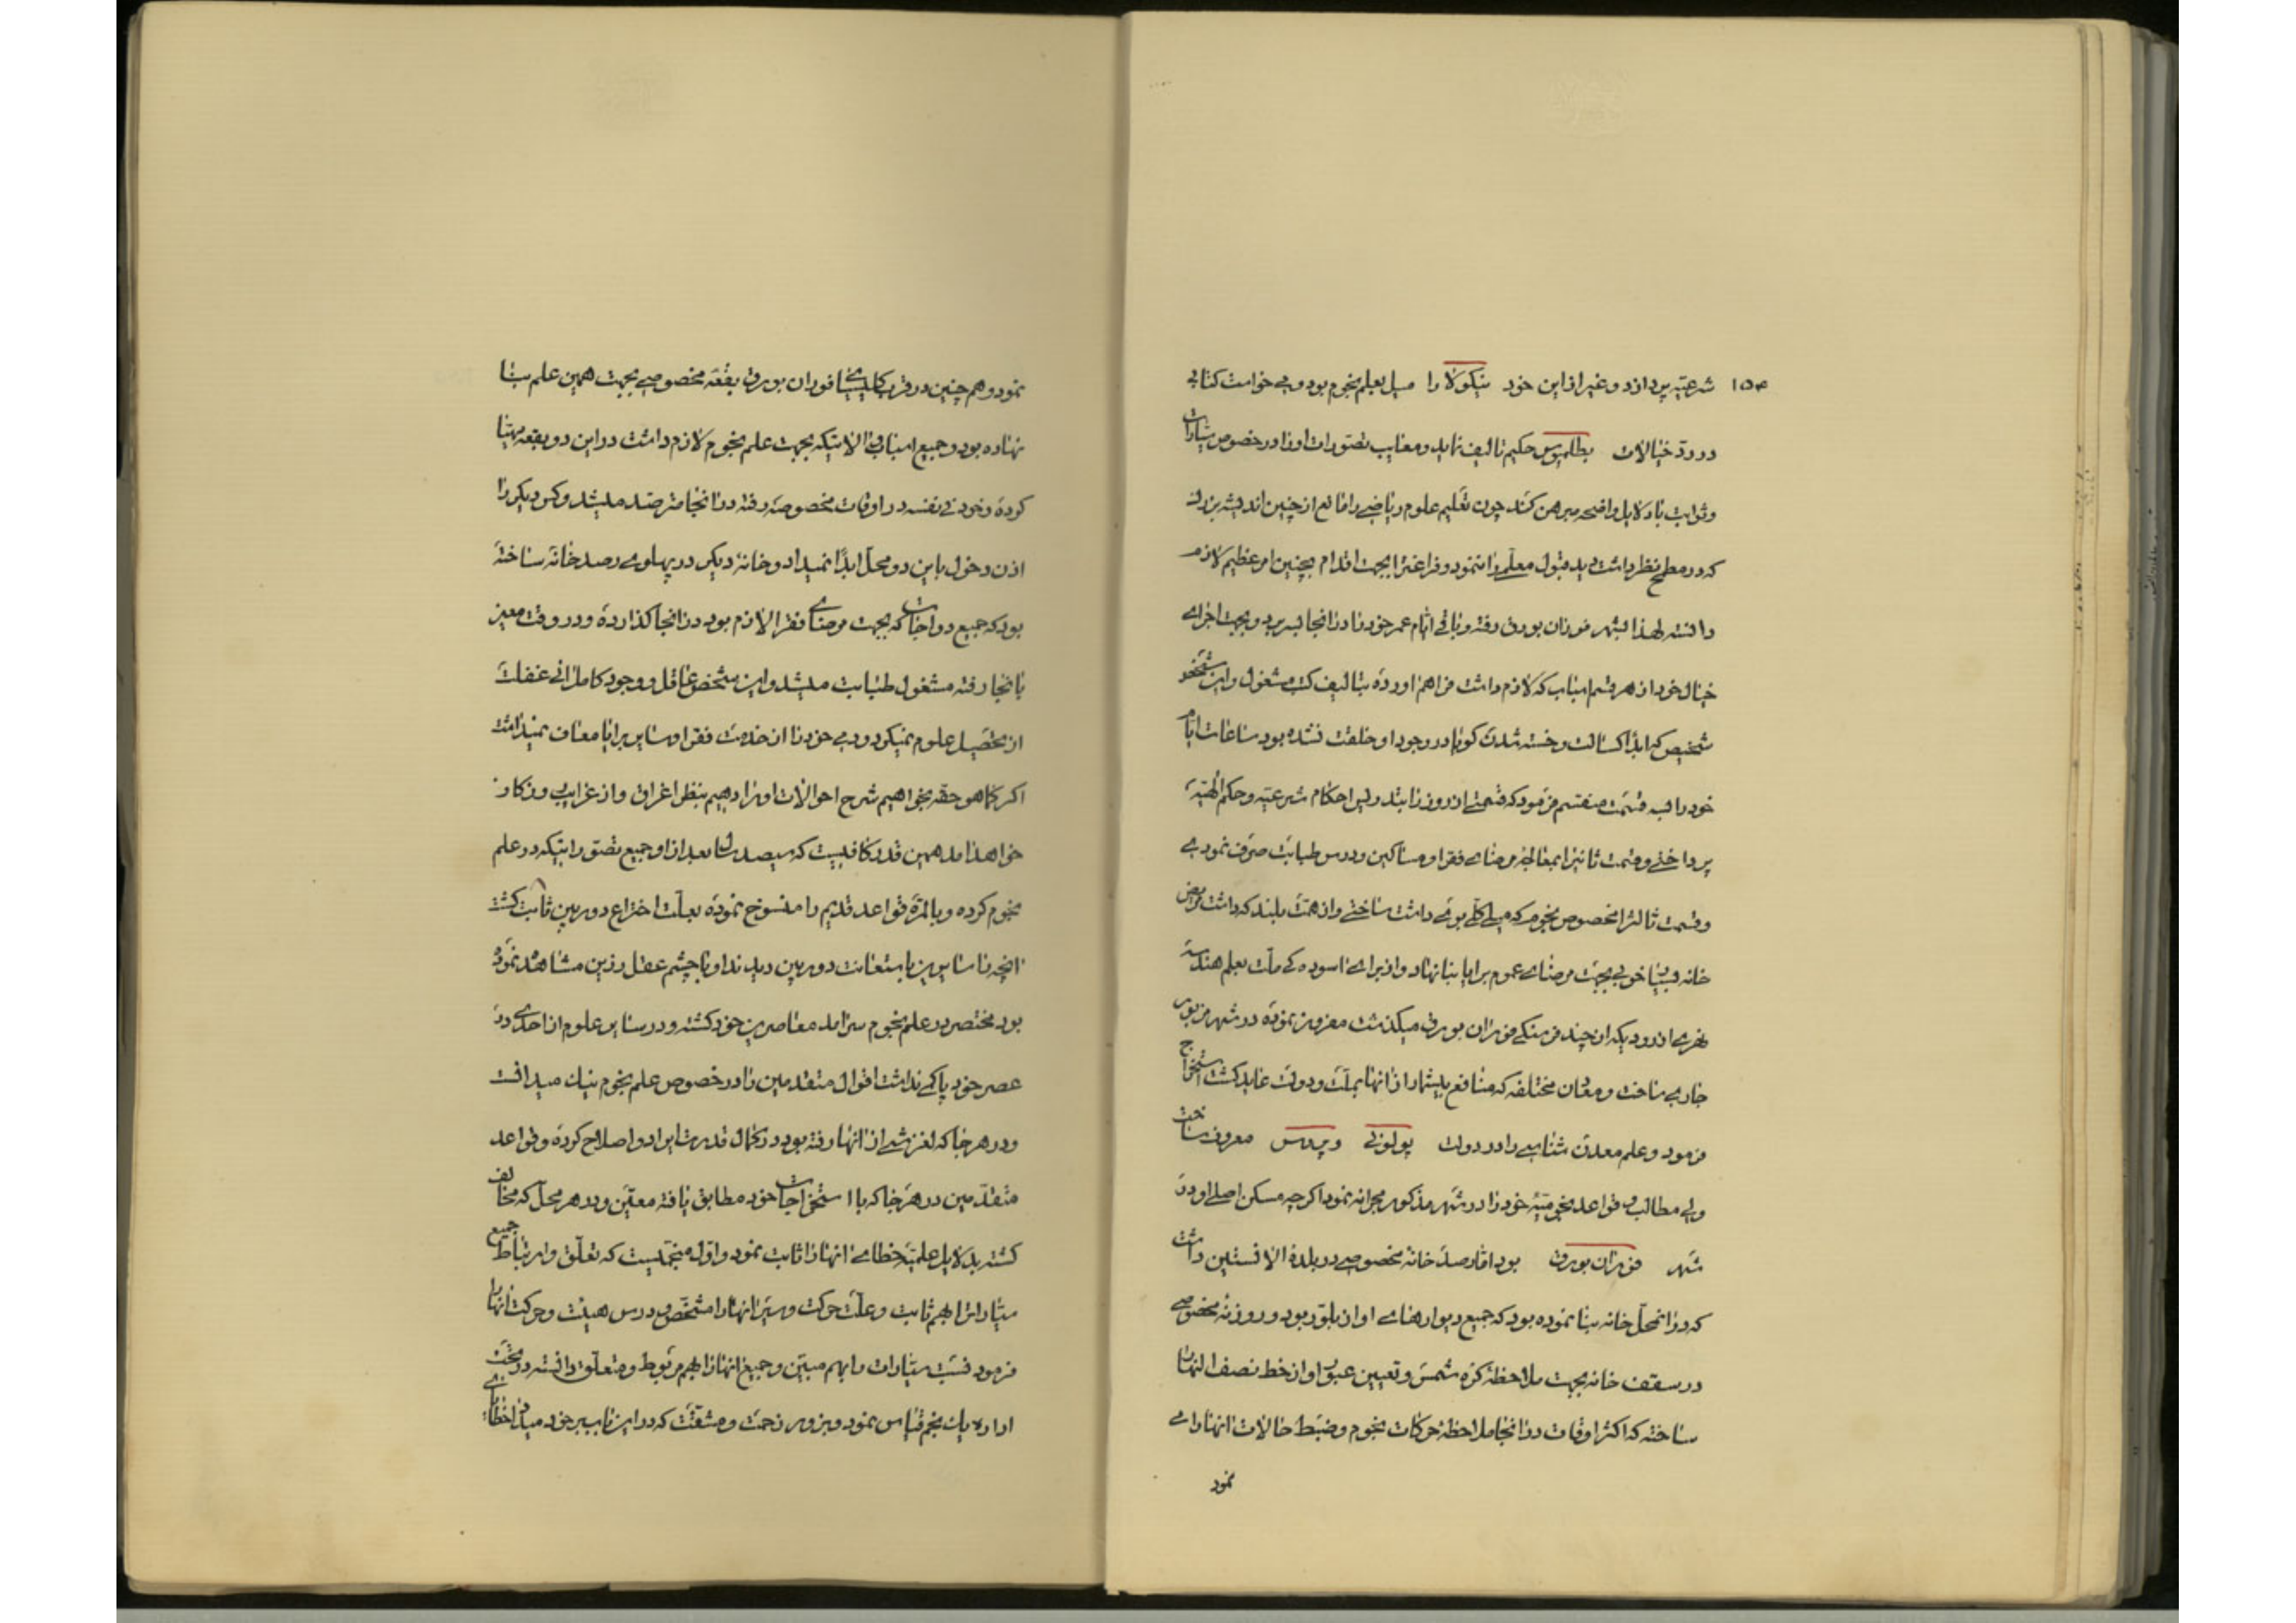 ۱۵۴ شرعیّه پردازد و غیر از این خود نیکولا را میل بعلم نجوم بود و می خواست کتابی
در ردّ خیالات بطلمیوس حکیم تالیف نماید و معایب تصورات او را در خصوص سیّارات
و ثوابت با دلایل واضحه مبرهن کند چون تعلیم علوم ریاضی را مانع از چنین اندیشه بزرک
که در مطمح نظر داشت دید قبول معلّمی را ننمود و فراغت را بجهت اقدام بچنین امر عظیم لازم
دانسته لهذا بشهر فوران بورق رفته و باقی ایّام عمر خود را در انجا بسر برد و بجهت اجرای
خیال خود از هر قسم اسباب که لازم داشت فراهم اورده بتالیف کتب مشغول و این شخص
شخیص که ابدًا کسالت و خسته شدن کویا در وجود او خلقت نشده بود ساعات ایّام
خود را بسه قسمت منقسم فرمود که قسمتی از روز را بتدریس احکام شرعیّه و حکم الهیّه
پرداختی و قسمت ثانی را بمعالجهٔ مرضای فقرا و مساکین و درس طبابت صرف نمودی
و قسمت ثالث را مخصوص نجوم که میل کلّی بوی داشت ساختی و از همّت بلند که داشت مریض
خانه و بنا خوبی بجهت مرضای عموم برایا بنا نهاد و از برای اسوده کی ملّت بعلم هندسه
نهری از رودیکه از چند فرسنکی فوران بورق میکذشت مفروز نموده در شهر مزبور
جاری ساخت و معادن مختلفه که منافع بیشمار از انها بملّت و دولت عاید کشت استخراج
فرمود و علم معدن شناسی را در دولت پولونی و پروس معروف ساخت
ولی مطالب و قواعد نجومیّهٔ خود را در شهر مذکور مجرا نه نمود اکرچه مسکن اصلی او در
شهر فوران بورق بود امّا رصد خانهٔ مخصوصی در بلدهٔ الافستین داشت
که در انمحلّ خانه بنا نموده بود که جمیع دیوارهای او از بلّور بود و روزنهٔ مخصوصی
در سقف خانه بجهت ملاحظهٔ کرهٔ شمس و تعیین عبور او از خط نصف النهار
ساخته که اکثر اوقات در انجا ملاحظهٔ حرکات نجوم و ضبط حالات انها را می
نمود
نمود و هم چنین در قرب کلیسای فوران بورق بقعهٔ مخصوصی بجهت همین علم بنا
نهاده بود و جمیع اسباب و الاتیکه بجهت علم نجوم لازم داشت در این دو بقعه مهیّا
کرده و خود فی نفسه در اوقات مخصوصه رفته در انجا مترصّد میشد و کس دیکر را
اذن دخول باین دو محلّ ابدًا نمیداد و خانهٔ دیکر در پهلوی رصد خانه ساخته
بود که جمیع دواجات که بجهت مرضای فقرا لازم بود در انجا کذارده و در وقت معیّن
بانجا رفته مشغول طبابت میشد و این شخص عاقل و وجود کامل انی غفلت
از تحصیل علوم نمیکرد و دمی خود را از خدمت فقرا و سایر برایا معاف نمیداشت
اکر کما هو حقّه بخواهیم شرح احوالات او را دهیم بنظر اغراق و از غرایب روزکار
خواهد امد همین قدر کافیست که سیصد سال بعد از او جمیع تصوّراتیکه در علم
نجوم کرده و بالمرّه قواعد قدیم را منسوخ نموده بعلّت اختراع دوربین ثابت کشت
انچه را سایرین باستعانت دوربین دیدند او با چشم عقل رزین مشاهده نموده
بود مختصر در علم نجوم سرامد معاصرین خود کشته و در سایر علوم از احدی در
عصر خود پاکی نداشت اقوال متقدمین را در خصوص علم نجوم نیک میدانست
و در هر جا که لغزشی از انها رفته بود در کمال قدرت ایراد و اصلاح کرده و قواعد
متقدّمین در هر جا که با استخراجات خود مطابق یافته معیّن و در هر محلّ که مخالف
کشته بدلایل علمیّه خطای انها را ثابت نمود و اوّل منجّمیست که تعلّق و ارتباط جمیع
سیّارات را بهم ثابت و علّت حرکت و سیر انها را مشخّص و درس هیئت و حرکت انها را
فرمود نسبت سیّارات را بهم مبیّن و جمیع انها را بهم مربوط و متعلّق دانسته در تحت
اداره یک نجم قیاس نمود و بزور زحمت و مشقّت که در این باب بر خود میداد خطای